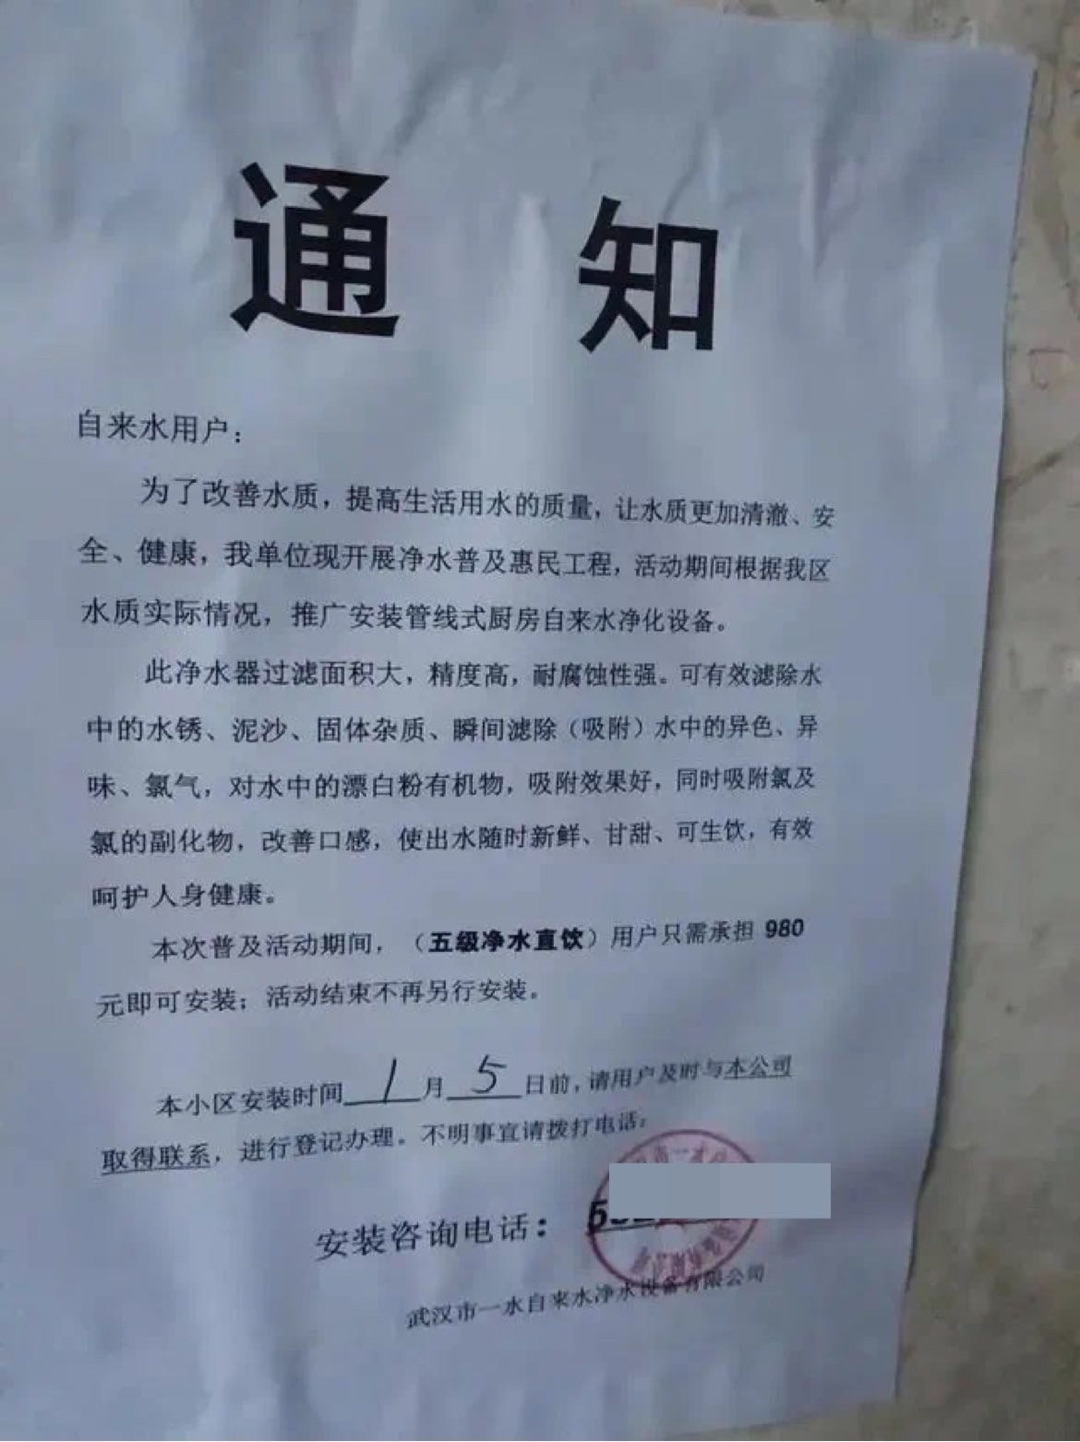 通 知
自来水用户：
为了改善水质，提高生活用水的质量，让水质更加清澈、安
全、健康，我单位现开展净水普及惠民工程，活动期间根据我区
水质实际情况，推广安装管线式厨房自来水净化设备。
此净水器过滤面积大，精度高，耐腐蚀性强。可有效滤除水
中的水锈、泥沙、固体杂质、瞬间滤除（吸附）水中的异色、异
味、氯气，对水中的漂白粉有机物，吸附效果好，同时吸附氯及
氯的副化物，改善口感，使出水随时新鲜、甘甜、可生饮，有效
呵护人身健康。
本次普及活动期间，（五级净水直饮）用户只需承担 980
元即可安装；活动结束不再另行安装。
本小区安装时间 1 月 5 日前，请用户及时与本公司
取得联系，进行登记办理。不明事宜请拨打电话：
安装咨询电话：
武汉市一水自来水净水设备有限公司